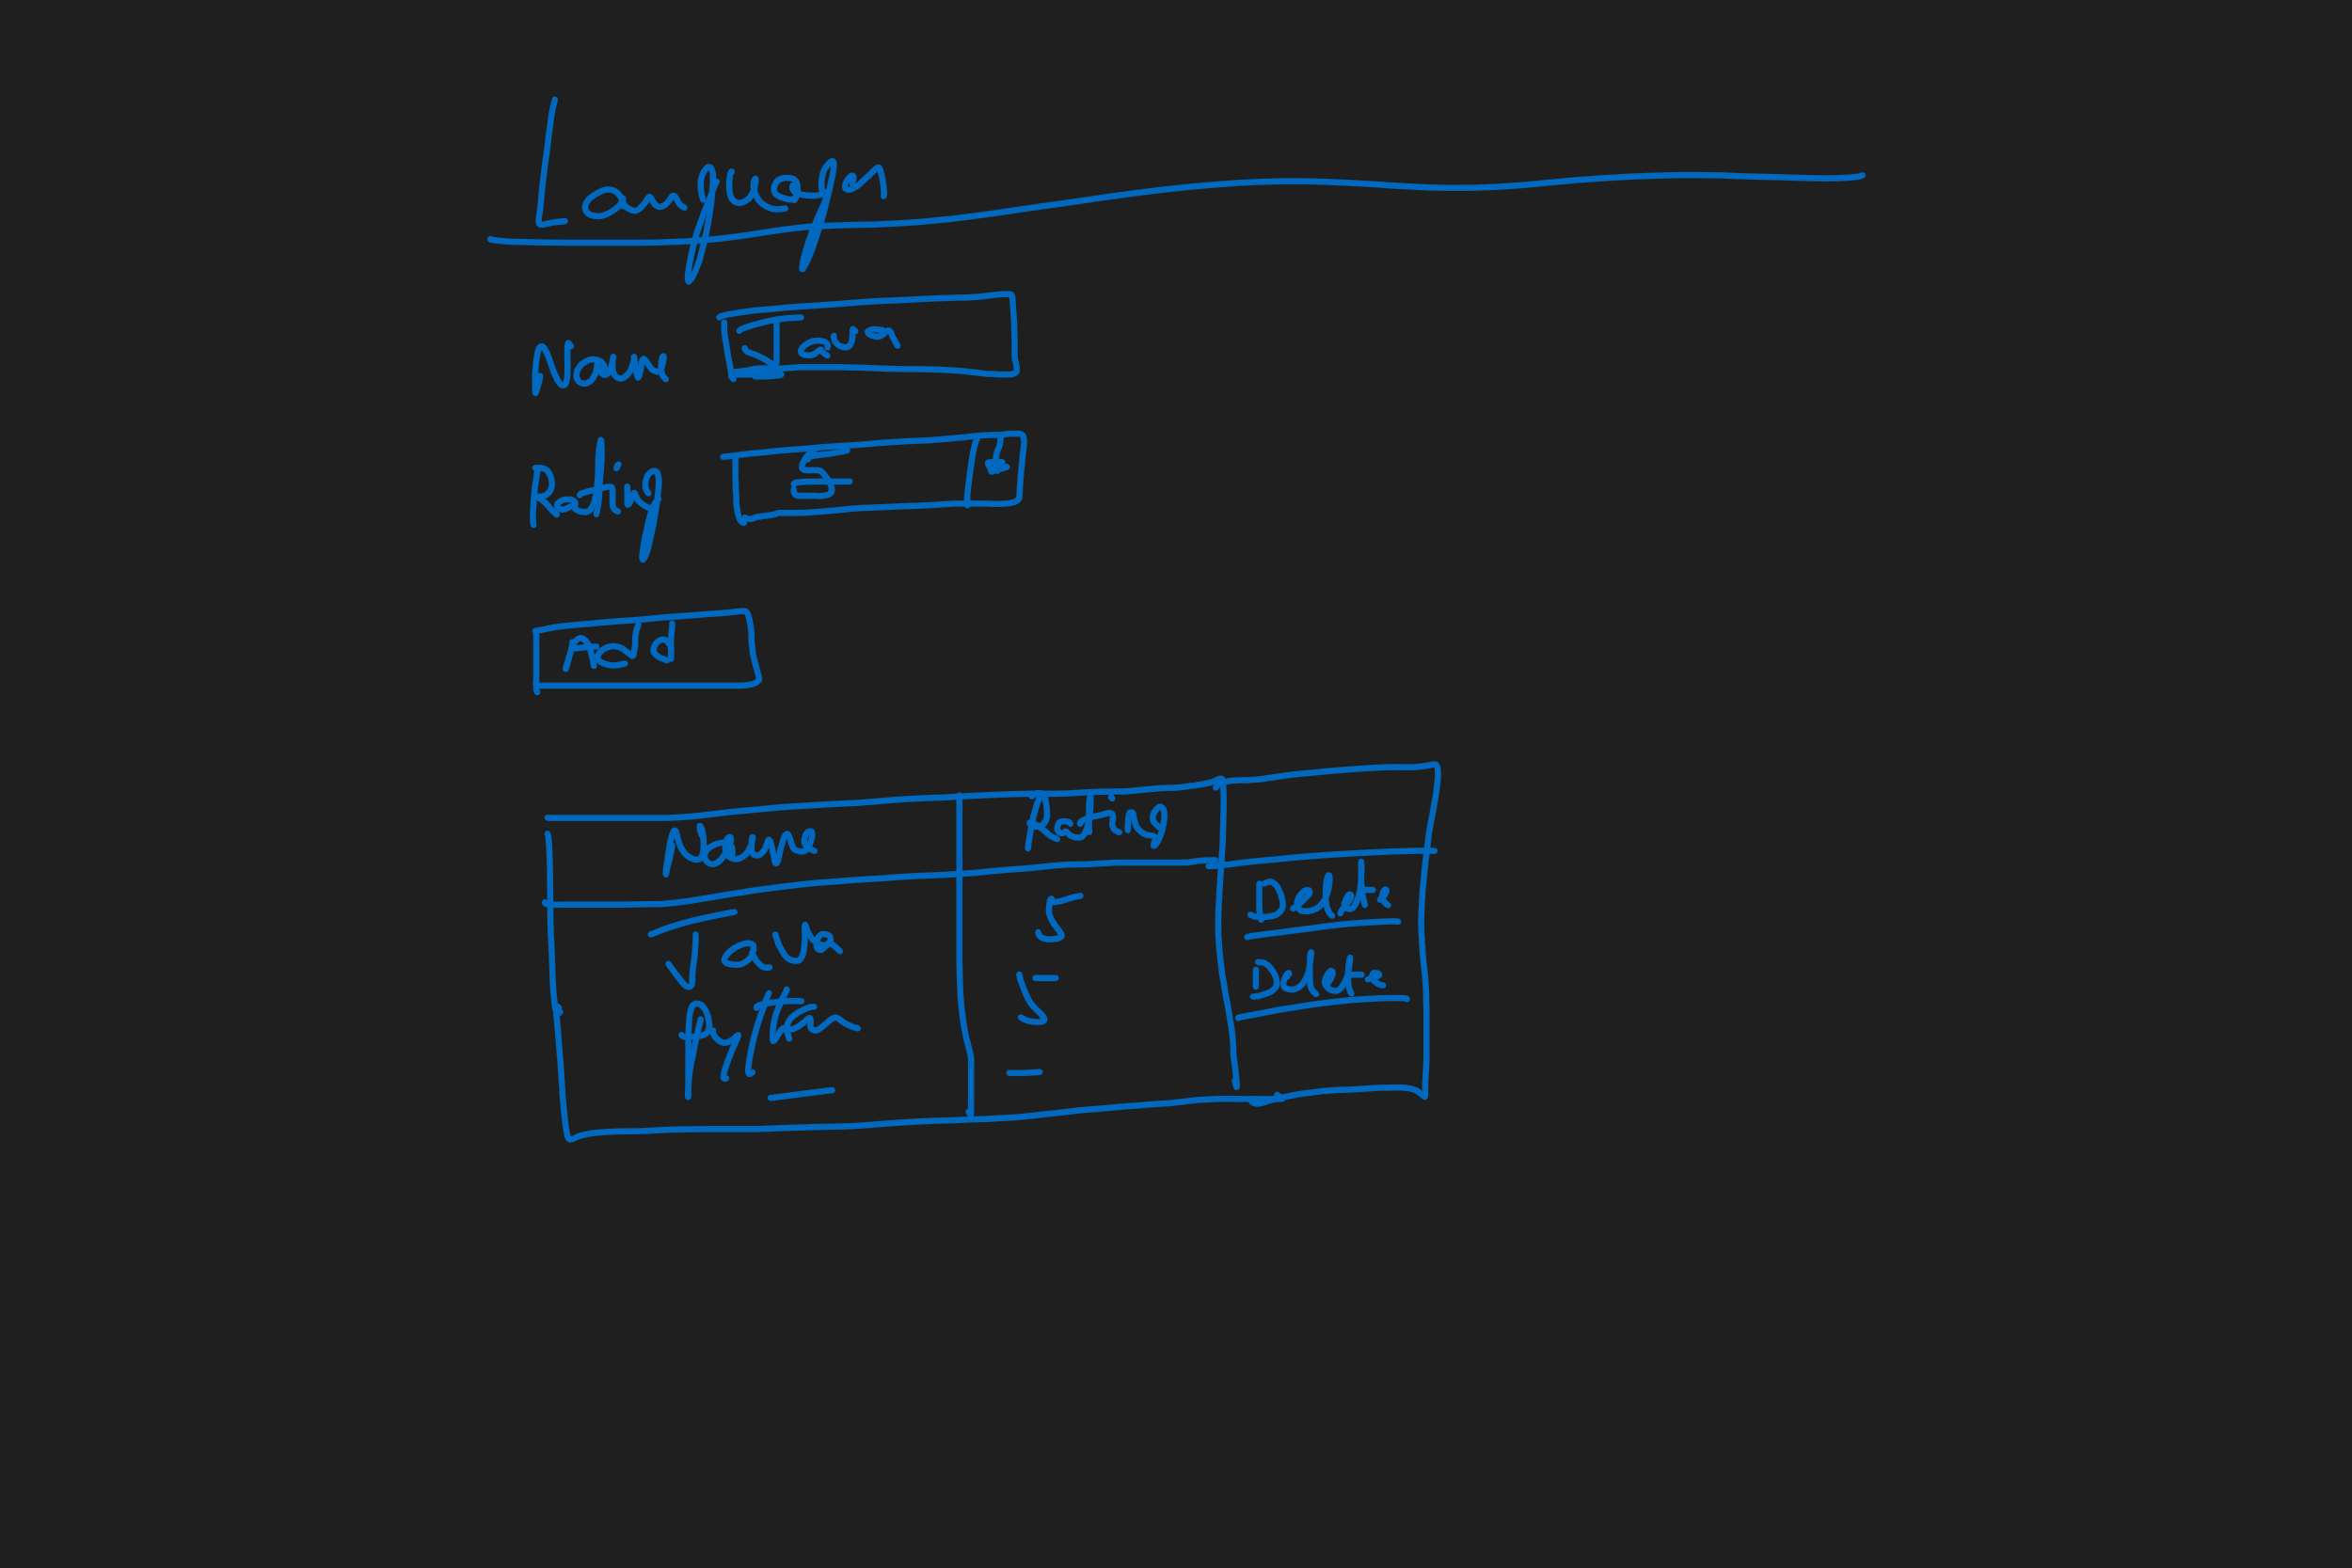 Languages
Name Java
Rating 5
Add
Name Rating
Java 5 Delete
Python 5 Delete